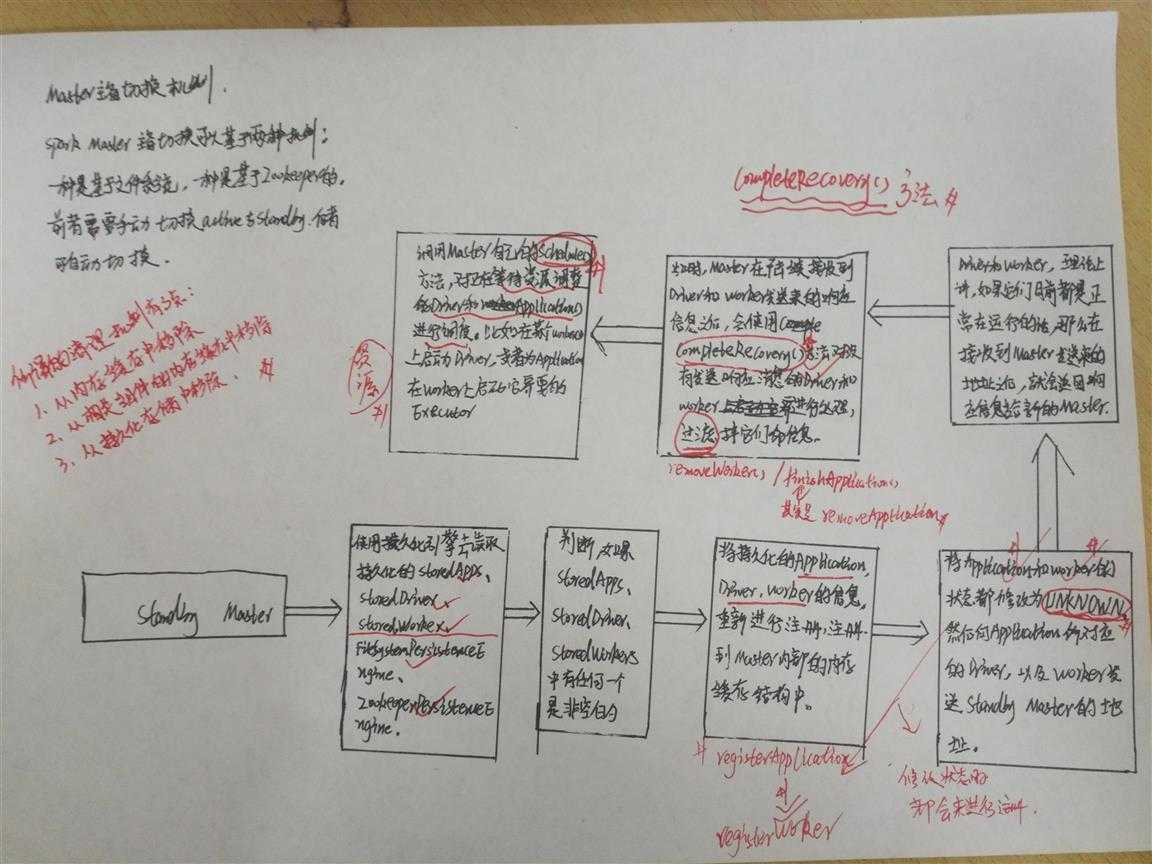 Master主备切换机制.
Spark Master 主备切换可以基于两种机制:
一种是基于文件系统, 一种是基于Zookeeper的.
前者需要手动切换active与Standby. 后者
可自动切换.
的清理机制有3点:
1、从内存缓存中移除
2、从相关组件的内存缓存中移除
3、从持久化存储中移除.
CompleteRecovery()方法
调用Master自己的schedule()
方法, 对正在等待资源调度
的Driver和Application
进行调度. 比如在某个worker
上启动Driver, 或者为Application
在Worker上启动它需要的
Executor
资源
此时, Master在陆续接收到
Driver和worker发送来的响应
信息之后, 会使用
CompleteRecovery()方法对没
有发送响应消息的Driver和
worker 进行处理,
过滤掉它们的信息.
removeWorker() / finishApplication()
其实是 removeApplication
Driver和worker, 理论上
讲, 如果它们目前都是正
常在运行的话, 那么在
接收到Master发送来的
地址之后, 就会返回响
应信息给新的Master.
Standby Master
使用持久化引擎去读取
持久化的storedApps、
storedDriver、
storedWorker、
FileSystemPersistenceE
ngine、
ZookeeperPersistenceE
ngine.
判断如果
StoredApps、
StoredDriver、
StoredWorkers
中有任何一个
是非空的
将持久化的Application,
Driver, Worker的信息,
重新进行注册, 注册
到Master内部的内存
缓存结构中.
registerApplication
registerWorker
将Application和worker的
状态都修改为UNKNOWN,
然后向Application所对应
的Driver, 以及Worker发
送Standby Master的地
址.
修改状态时
都会来进行注册.